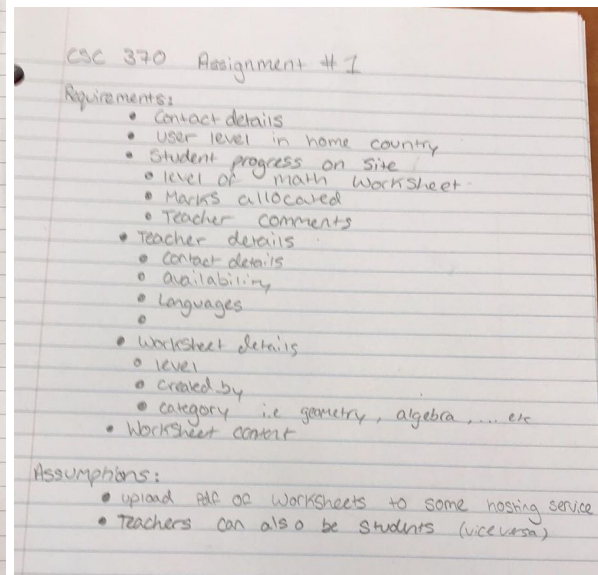 CSC 370 Assignment #1
Requirements:
• Contact details
• User level in home country
• Student progress on site
• level of math worksheet
• Marks allocated
• Teacher comments
• Teacher details
• contact details
• availability
• Languages
•
• Worksheet details
• level
• created by
• category i.e geometry, algebra, .... etc
• Worksheet content
Assumptions:
• upload pdf of worksheets to some hosting service
• Teachers can also be students (vice versa)